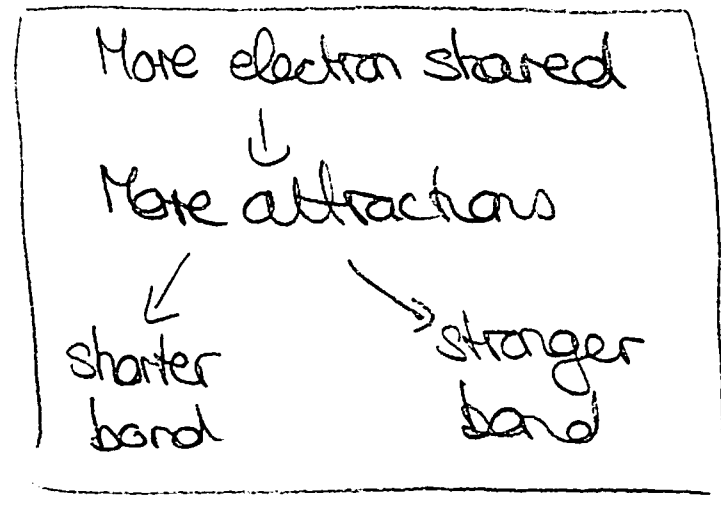 More electron shared
↓
More attractions
↙ ↘
shorter stronger
bond bond